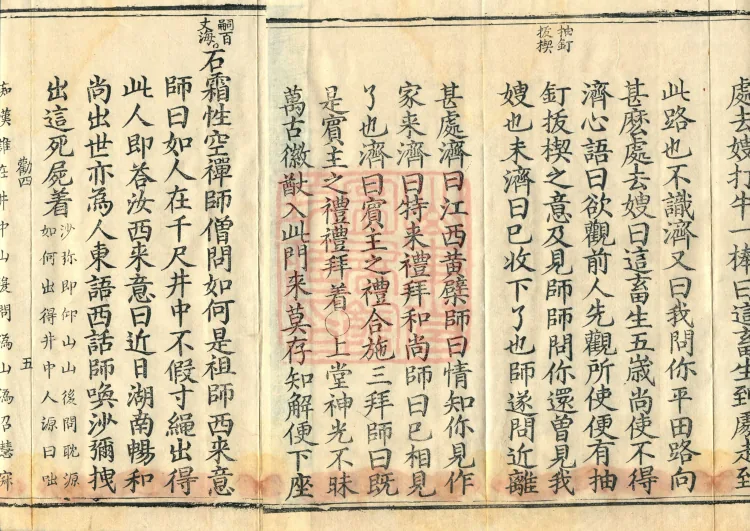 處去嫂打牛一棒曰這畜生到處走到
此路也不識濟又曰我問你平田路向
甚麽處去嫂曰這畜生五歲尚使不得
濟心語曰欲觀前人先觀所使便有抽
釘拔楔之意及見師師問你還曾見我
嫂也未濟曰已收下了也師遂問近離
抽釘
拔楔
甚處濟曰江西黃檗師曰情知你見作
家来濟曰特来禮拜和尚師曰已相見
了也濟曰賓主之禮合施三拜師曰既
是賓主之禮禮拜着○上堂神光不昧
萬古徽猷入此門来莫存知解便下座
嗣百
丈海。
石霜性空禪師僧問如何是祖師西来意
師曰如人在千尺井中不假寸繩出得
此人即荅汝西来意曰近日湖南暢和
尚出世亦爲人東語西話師喚沙彌拽
出這死屍着
沙弥即仰山山後問耽源
如何出得井中人源曰咄
勸四 五
癡漢誰在井中山後問潙山潙召慧寂